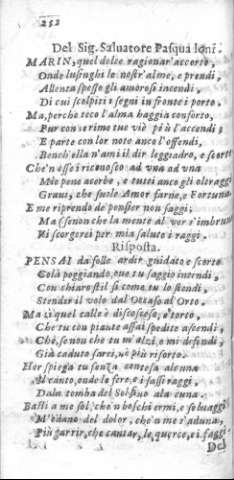 252
Del Sig. Saluatore Pasqua loni.
MARIN, quel dolce ragionar' accorto,
Onde lusinghi le nostr'alme, e prendi,
Allenta spesso gli amorosi incendi,
Di cui scolpiti i segni in fronte i porto.
Ma, perche teco l'alma haggia conforto,
Pur con le rime tue viè più l'accendi;
E parte con lor note anco l'offendi,
Bench' ella n'ami il dir leggiadro, e scorto
Che'n esse i riconosco ad vna ad vna
Mie pene acerbe, e tutei anco gli oltraggi
Graui, che suole Amor farne, e Fortuna.
E me riprendo de' pensier non saggi;
Ma
che la mente al ver s'imbruna
Ri scorgerci per mia salute i raggi.
Risposta.
PENSAI da folle ardir guidato e scorto
Colà poggiando, oue tu saggio intendi,
Con chiaro stil
come tu lo stendi,
Stender il volo dal Occaso al Orto.
Ma
quel calle è discosceso, e torto,
Che tu con piante assai spedite ascendi;
Ché, se non che tu m'alzi, e mi defendi,
Già caduto sarei, nè più risorto.
Hor spiega tu senza contesa alcuna
Il canto, onde le fere, e i sassi traggi,
Dala tomba del Sol fino ala cuna.
Basti a me sol, che'n boschi ermi, e seluaggi
M'odano del dolor, che'n me s'aduna,
Più garrir, che cantar, le querce, e i faggi.
Del